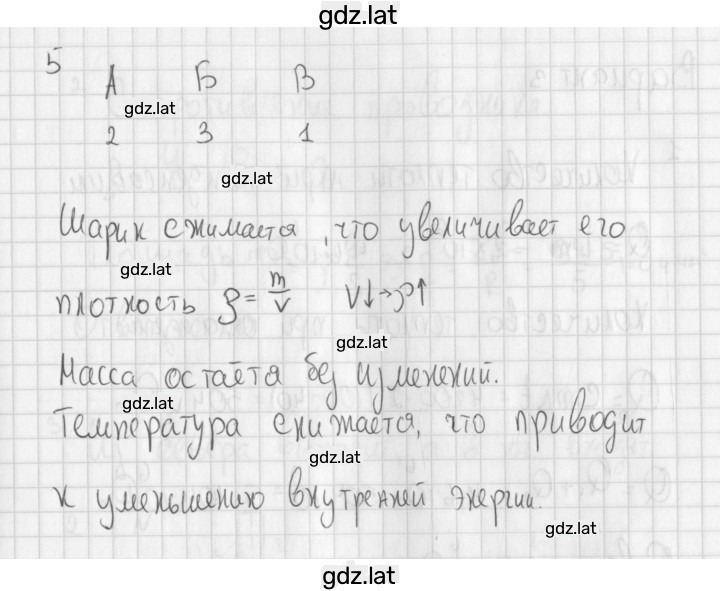 gdz.lat
5
А Б В
gdz.lat
2 3 1
gdz.lat
Шарик сжимается, что увеличивает его
gdz.lat
плотность ρ = m/V V↓→ρ↑
gdz.lat
Масса остаётя без изменений.
gdz.lat
Температура снижается, что приводит
gdz.lat
к уменьшению внутренней энергии.
gdz.lat
gdz.lat